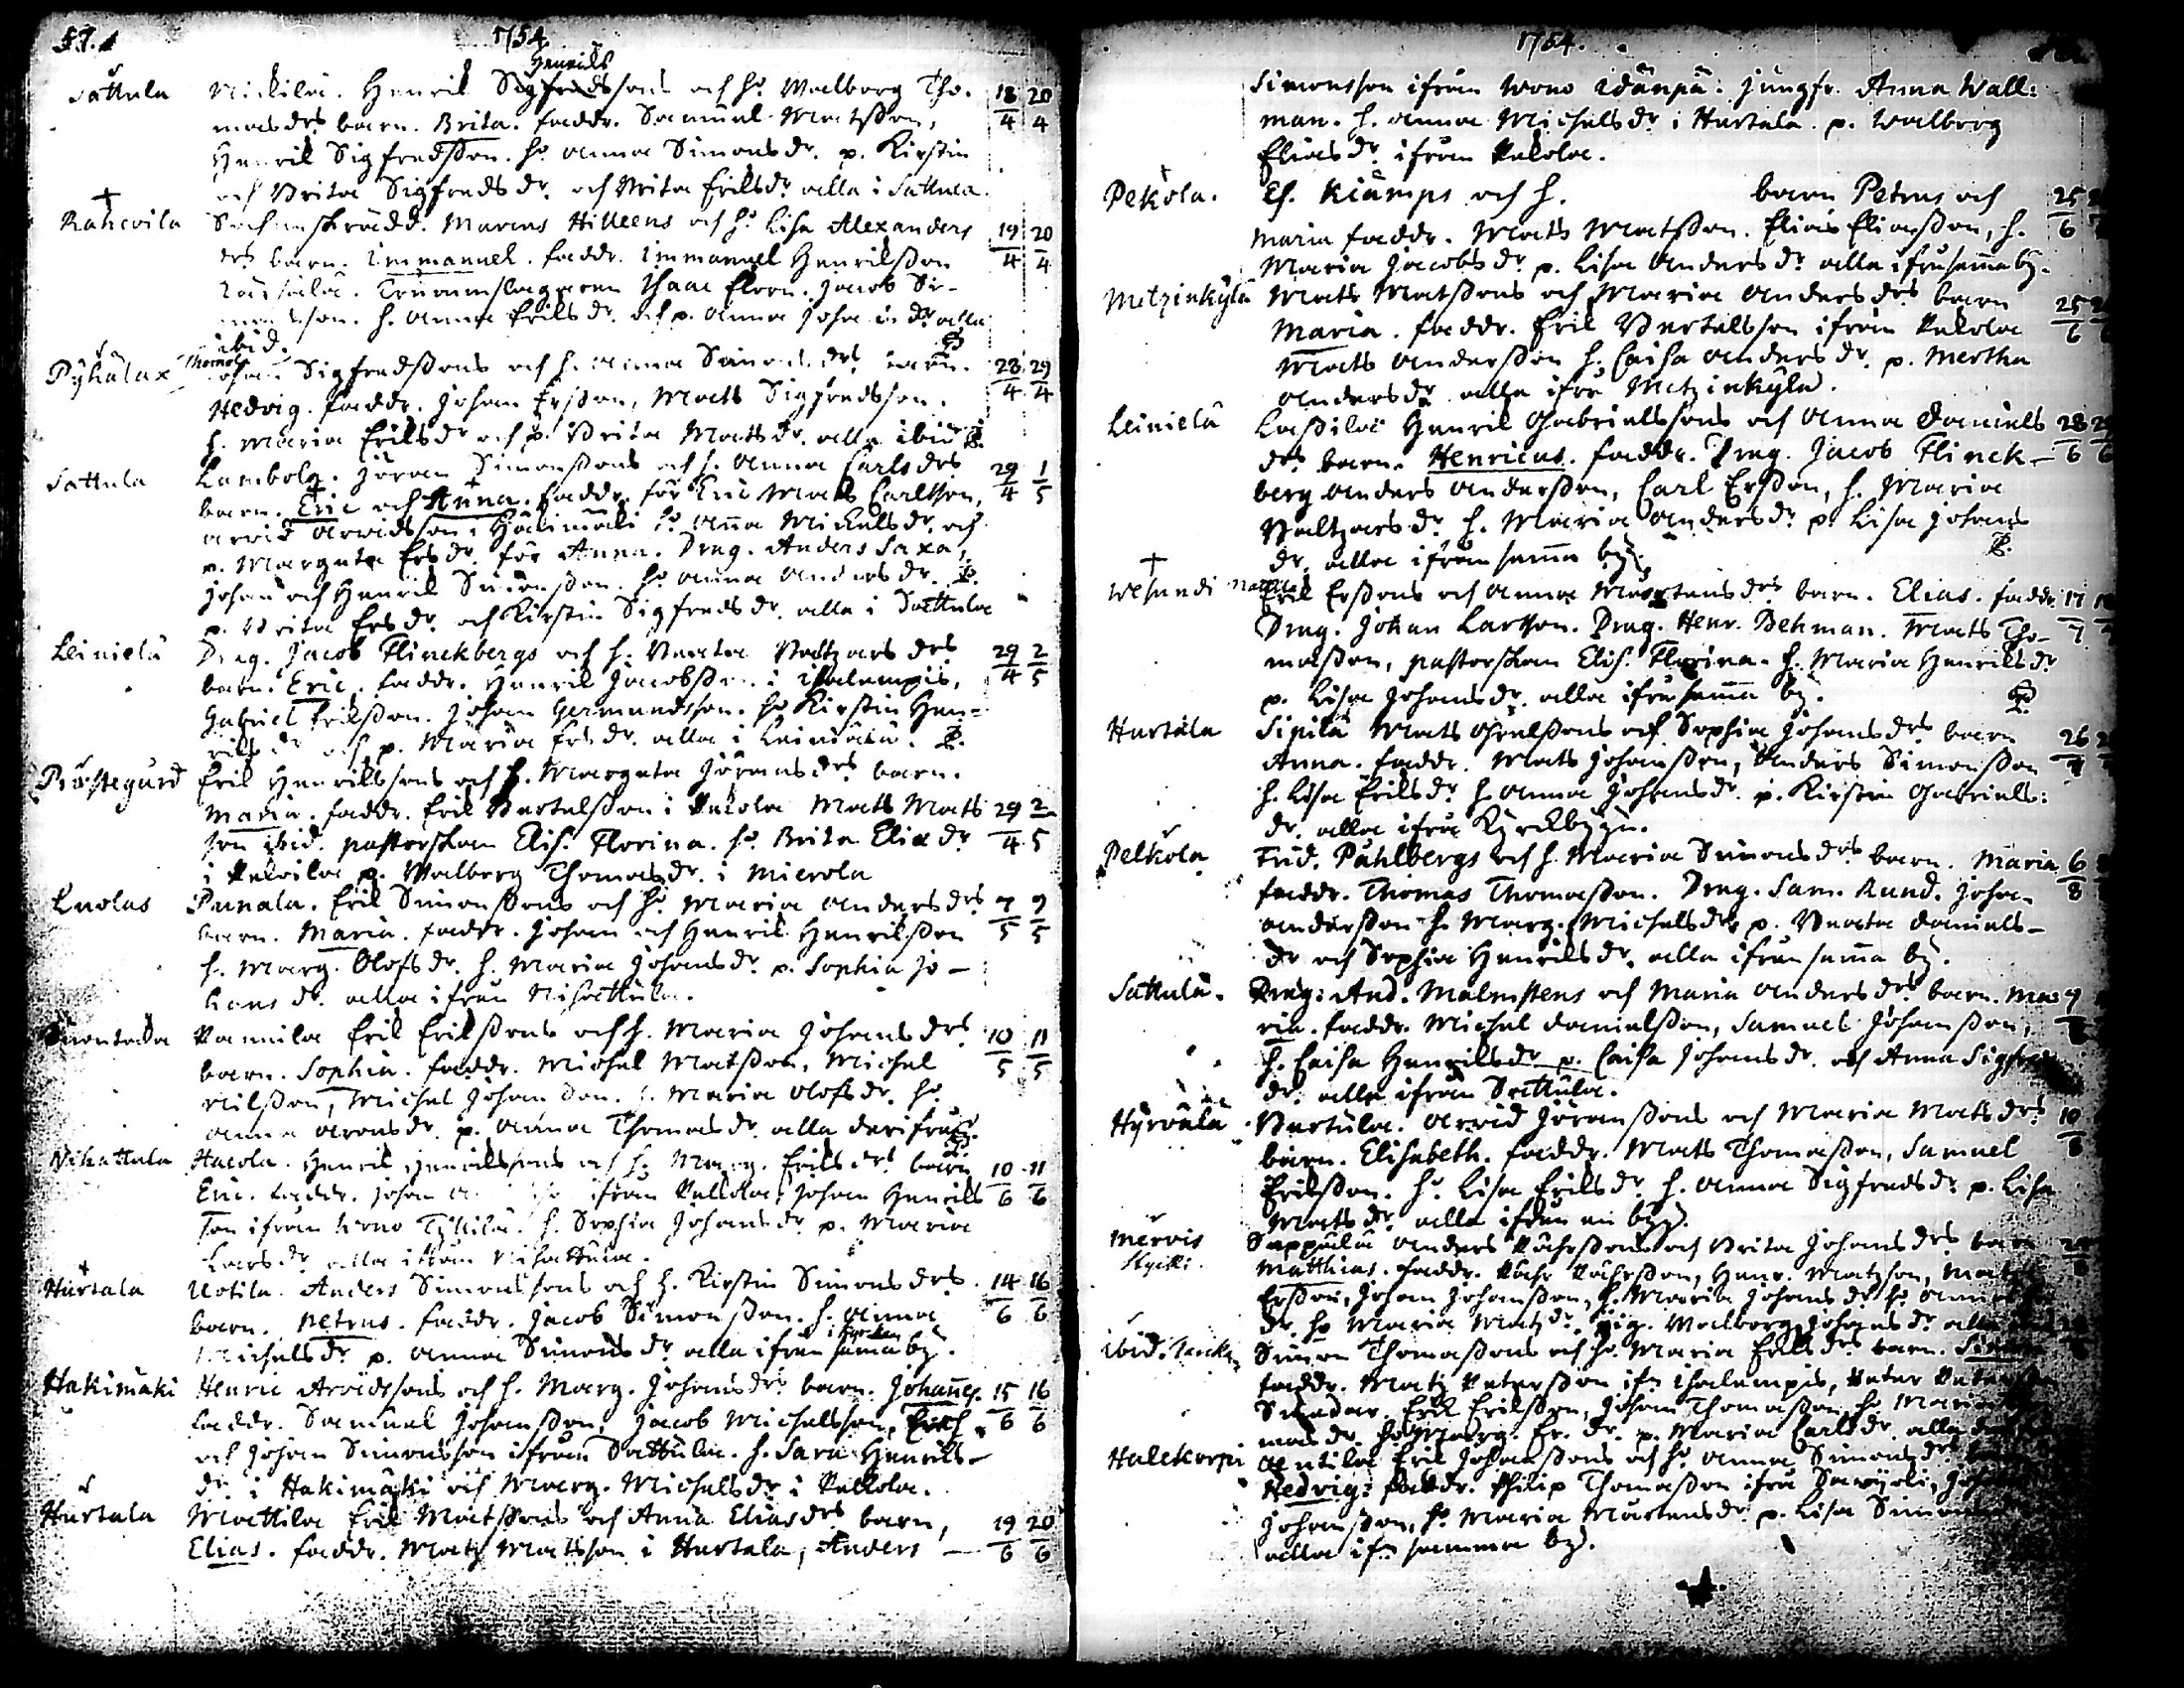 57.
1754.
Henrics
Sattula Nickilä. Henric Sigfredssons och h:o Walborg Tho- 18/4 20/4
mas dr:s barn. Brita. faddr. Samuel Matsson,
Henric Sigfredsson. h:o Anna Simonsdr. p. Kirstin
och Brita Sigfredsdr. och Brita Ericsdr alla i Sattula.
Rahcoila Sochnskrädd. Marcus Hilleens och h:o Lisa Alexanders 19/4 20/4
dr:s barn. Immanuel. faddr. Immanuel Henricsson
Trummslagaren Isaac Floen. Jacob Si-
monsson. h. Anna Ericsdr. och p. Anna Johansdr alla
ibid.
Pyhälax Thomola Johan Sigfredssons och h. Anna Simonsdr:s barn. 28/4 29/4
Hedvig. faddr. Johan Ersson, Matts Sigfredsson.
h. Maria Ericsdr och p. Brita Mattsdr. alla ibid
Sattula Lambola. Jöran Simonssons och h. Anna Carlsdr:s 29/4 1/5
barn. Eric och Anna. faddr. för Eric Mats Carlsson,
Arvid Arvidsson i Häkimäki h:o Anna Mickelsdr. och
p. Margeta Ersdr. för Anna. Drag. Anders Saxa,
Johan och Henric Simonsson. h:o Anna Andersdr.
p. Brita Ersdr. och Kirstin Sigfredsdr. alla i Sattula
Leinielä Drag. Jacob Flinckbergs och h. Beata Baltzarsdr:s 29/4 2/5
barn. Eric. faddr. Henric Jacobsson i Ihalempis,
Gabriel Ericsson. Johan Germundsson. h:o Kirstin Hen-
ricsdr och p. Maria Ersdr. alla i Leinielä.
Prästegård Eric Henricssons och h. Margeta Jöransdr:s barn.
Maria. faddr. Eric Bertelsson i Pekola Matts Mats 29/4 2/5
son ibid. pastorskan Elis. Florina. h:o Brita Eliædr
i p. Walborg Thomasdr. i Mierola
Luolas Punala. Eric Simonssons och h:o Maria Andersdr:s 7/5 9/5
barn. Maria. faddr. Johan och Henric Henricsson
h. Marg. Olofsdr. h. Maria Johansdr. p. Sophia Jo-
hansdr. alla ifrån Nihattula.
Suontaka Pannila Eric Ericssons och h. Maria Johansdr:s 10/5 11/5
barn. Sophia. faddr. Michel Matsson, Michel
Nilsson, Michel Johansson. h. Maria Olofsdr. h:o
Anna Aronsdr. p. Anna Thomasdr. alla derifrån.
Nihattula Hacola. Henric Henricssons och h. Marg. Ericsdr:s barn 10/6 11/6
Eric. faddr. Johan ifrån Pelkola, Johan Henrics
son ifrån h. Sophia Johansdr p. Maria
Larsdr alla ifrån Nihattula.
Hurtala Uotila. Anders Simonssons och h. Kirstin Simonsdr:s 14/6 16/6
barn. Petrus. faddr. Jacob Simonsson. h. Anna
Michelsdr p. Anna Simonsdr alla ifrån sama by.
Hakimäki Henric Arvidssons och h. Marg. Johansdr:s barn. Johannes. 15/6 16/6
faddr. Samuel Johansson, Jacob Michelsson,
och Johan Simonsson ifrån Sattula. h. Sara Henrics-
dr. i Hakimäki och Marg. Michelsdr i Pelkola.
Hurtala Mattila Eric Matssons och Anna Eliasdr:s barn, 19/6 20/6
Elias. faddr. Matz Matsson i Hurtala, Anders
1754.
Simonsson ifrån Wono jungfr. Anna Wall-
man. h. Anna Michelsdr i Hurtala. p. Walborg
Eliasdr. ifrån Pekola.
Pekola. Es. Kiämps och h. barn Petrus och 25/6
Maria faddr. Matts Matsson. Elias Eliasson, h.
Maria Jacobsdr p. Lisa Andersdr alla ifrå sama by.
Metzinkylä Mats Matssons och Maria Andersdr:s barn 25/6
Maria. faddr. Eric Bertelsson ifrån Pekola
Mats Andersson h. Caisa Andersdr. p. Mertha
Andersdr alla ifrå Metzinkylä.
Leinielä Lassila Henric Gabrielssons och Anna Daniels 28/6
dr:s barn. Henricus. faddr. Drag. Jacob Flinck-
berg Anders Andersson, Carl Ersson, h. Maria
Baltzarsdr h. Maria Andersdr p. Lisa Johans
dr. alla ifrån sama by.
Wesunda Eric Erssons och Anna Mårtensdr:s barn. Elias. faddr. 17/7
Drag. Johan Larsson. Drag. Henr. Behman. Mats Tho-
masson, pastorskan Elis. Florina. h. Maria Henricsdr
p. Lisa Johansdr. alla ifrå sama by.
Hurtala Sipilä Mats Grelssons och Sophia Johansdr:s barn 26/7
Anna. faddr. Mats Johansson, Anders Simonsson
h. Lisa Ericsdr h. Anna Johansdr. p. Kirstin Gabriels-
dr. alla ifrå Kyrckbyyn.
Pelkola Frid. Påhlbergs och h. Maria Simonsdr:s barn. Maria 6/8
faddr. Thomas Thomasson. Drag. Sam. Rund. Johan
Andersson h. Marg. Michelsdr p. Beata Daniels-
dr och Sophia Henricsdr. alla ifrån sama by.
Sattula. Drag. And. Malmstens och Maria Andersdr:s barn. Ma- 9
ria. faddr. Michel Danielsson, Samuel Johansson,
h. Caisa Henricsdr p. Caisa Johansdr. och Anna Sigfreds
dr. alla ifrån Sattula.
Hyrvälä Bertula. Arvid Jöranssons och Maria Matsdr:s 10/8
barn. Elisabeth. faddr. Matts Thomasson, Samuel
Ericsson. h:o Lisa Ericsdr h. Anna Sigfredsdr p. Lisa
Matsdr. alla ifrån en by.
Mervis Seppälä Anders Påhrssons och Brita Johansdr:s barn
Matthias. faddr. Påhr Påhrsson, Henr. Matzson,
Ersson, Johan Johansson, h. Maria Johansdr h:o Anna
dr. h:o Maria Matzdr. pig. Walborg Johansdr alla
ibid. Simon Thomassons och h:o Maria Ericsdr:s barn.
faddr. Matz Petersson ifr. Ihalempis, Peter
Eric Ericsson, Johan Thomasson h:o Maria
masdr. h:o Marg. Er.dr. p. Maria Carlsdr. alla
Halckorpi Eric Johanssons och h:o Anna Simonsdr:s
Hedvig: faddr. Philip Thomasson ifrå
Johansson, h:o Maria Mårtensdr p. Lisa
alla ifr. samma by.